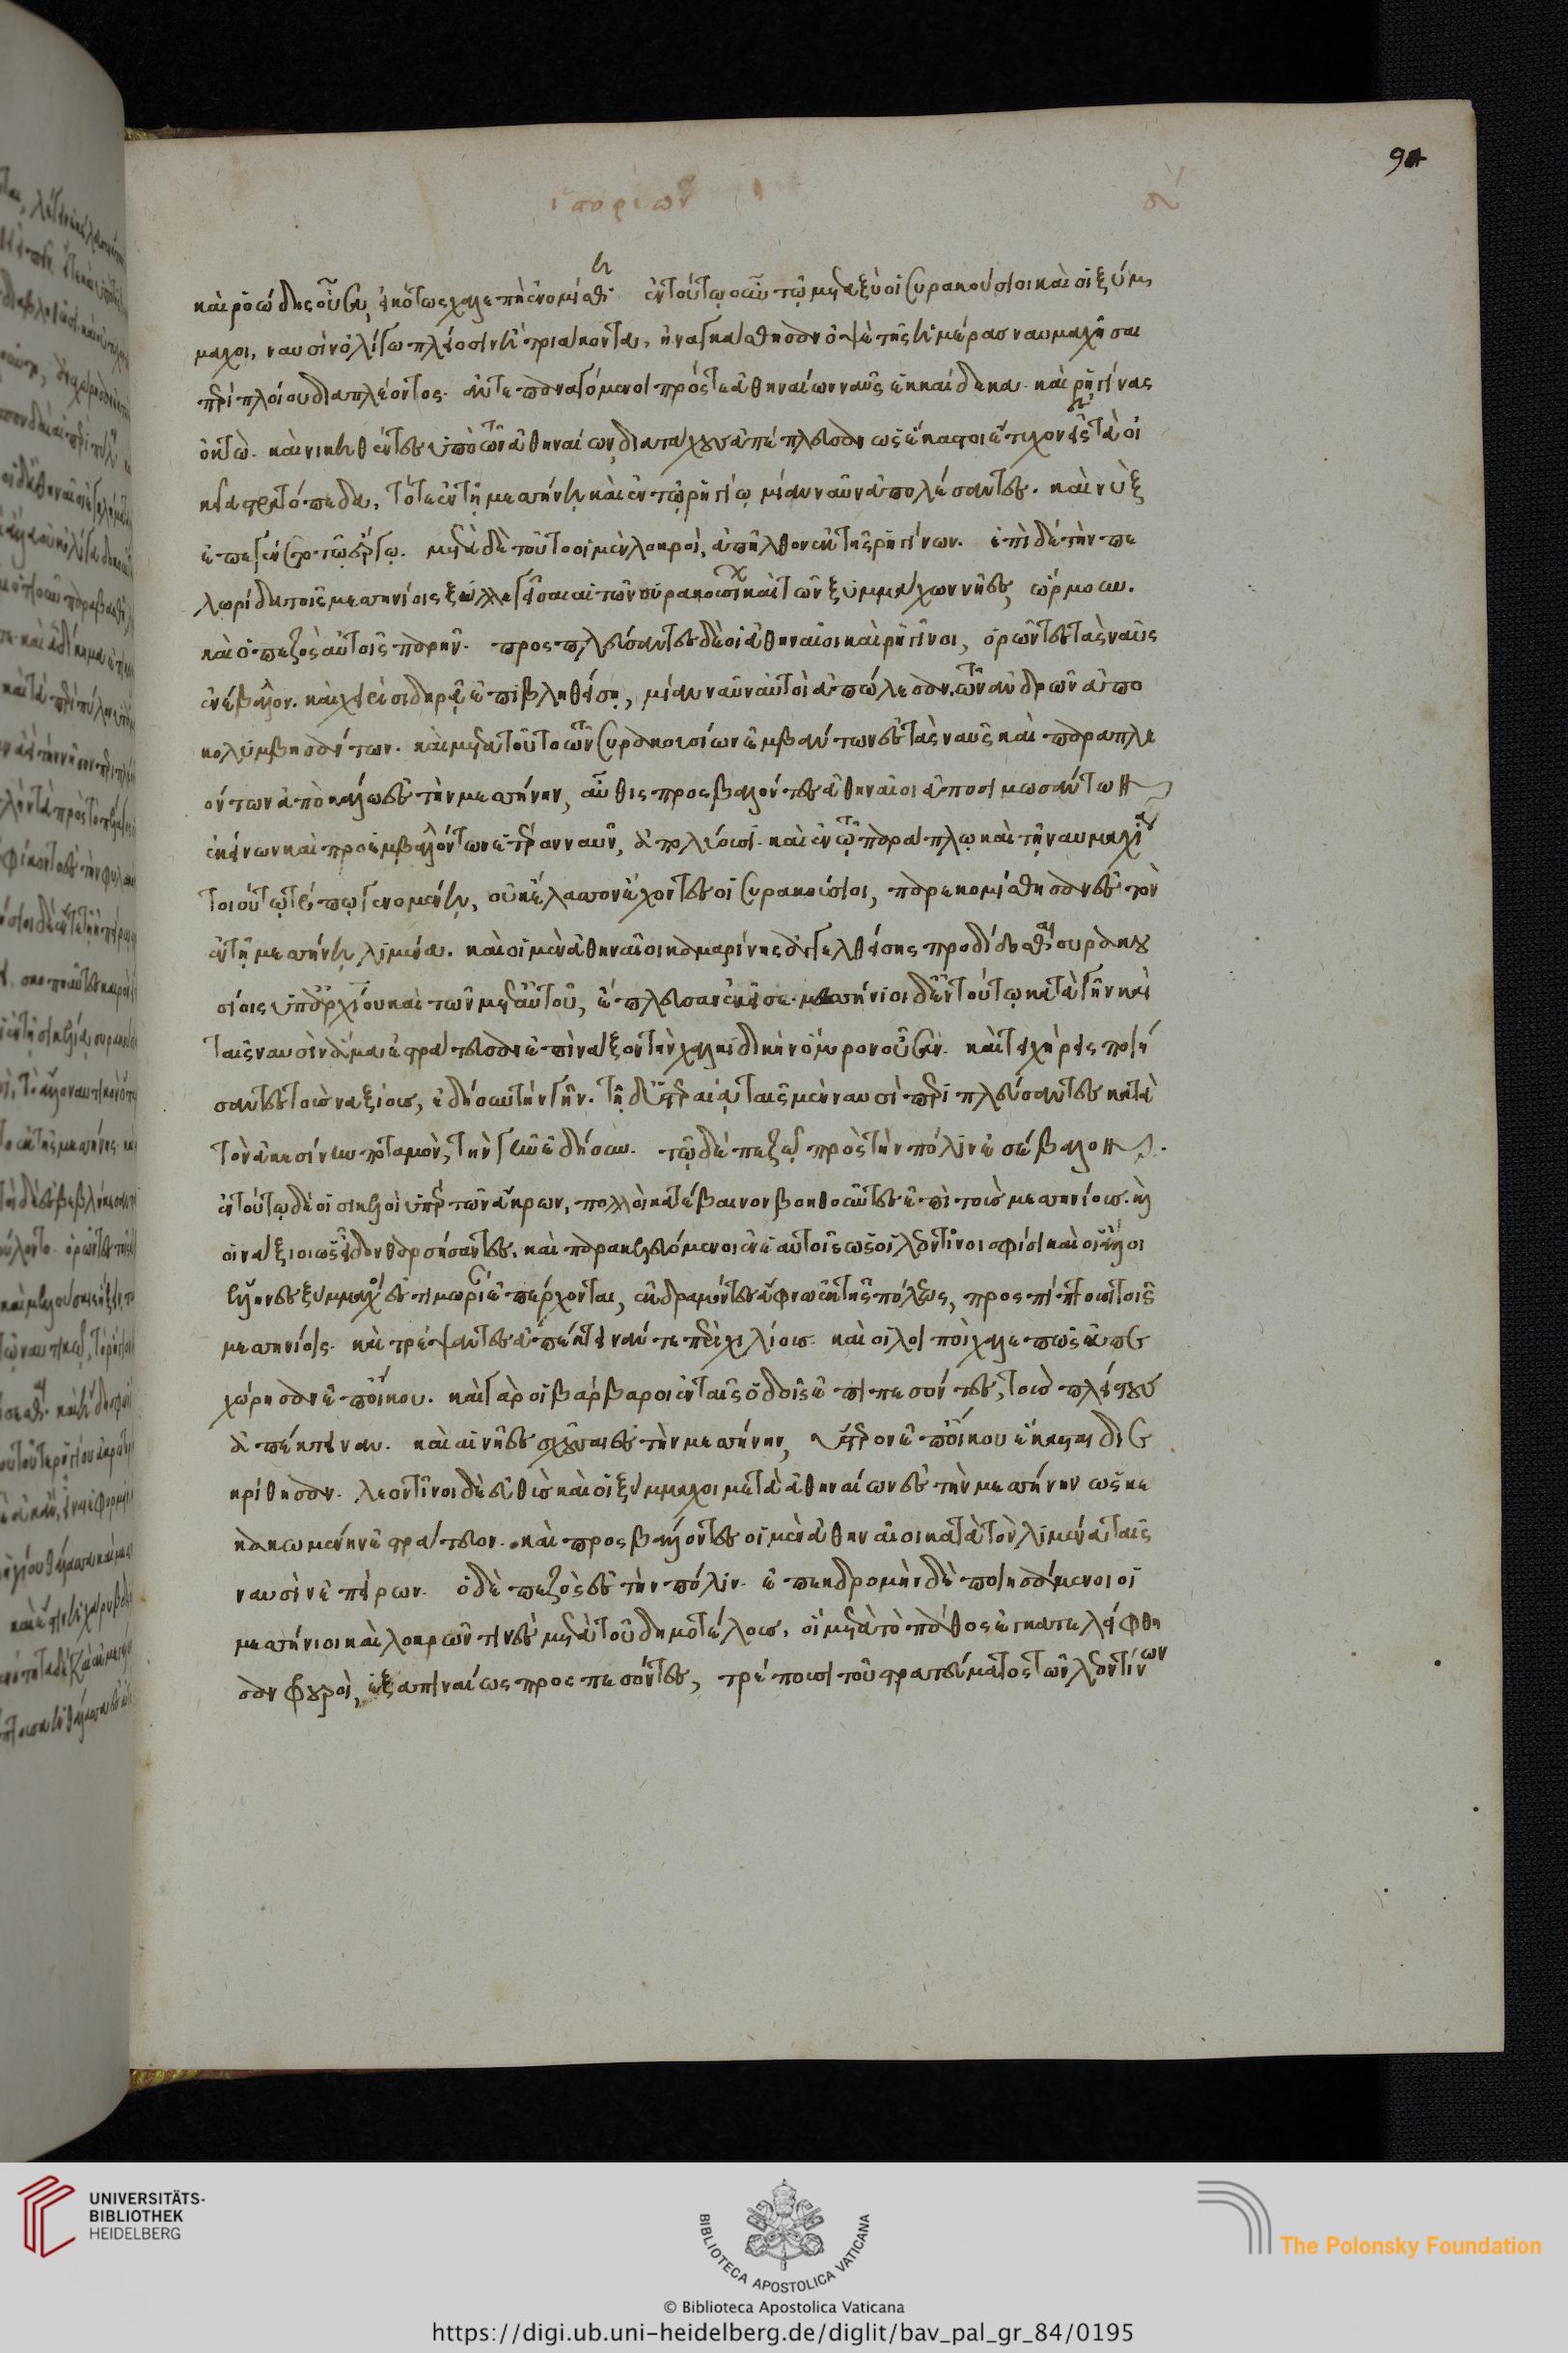 94
ἱστοριῶν
δ´
καὶ ῥοώδης οὖσα, εἰκότως χαλεπὴ ἐνομίσθη. ἐν τούτῳ οὖν τῷ μεταξὺ οἱ συρακούσιοι καὶ οἱ ξύμ
μαχοι, ναυσὶν ὀλίγῳ πλέοσιν ἢ τριάκοντα, ἠναγκάσθησαν ὀψὲ τῆς ἡμέρας ναυμαχῆσαι
περὶ πλοίου διαπλέοντος. ἀντεπαναγόμενοι πρός τε ἀθηναίων ναῦς ἑκκαίδεκα. καὶ ῥηγίνας
ὀκτώ. καὶ νικηθέντες ὑπὸ τῶν ἀθηναίων, διατάχους ἀπέπλευσαν ὡς ἕκαστοι ἔτυχον εἰς τὰ οἰ
κεῖα στρατόπεδα, τότε ἐν τῇ μεσσήνῃ καὶ ἐν τῷ ῥηγίῳ μίαν ναῦν ἀπολέσαντες. καὶ νὺξ
ἐπεγένετο τῷ ἔργῳ. μετὰ δὲ τοῦτο οἱ μὲν λοκροί, ἀπῆλθον ἐκ τῆς ῥηγίνων. ἐπὶ δὲ τὴν πε
λωρίδα τοῖς μεσσηνίοις ξυλλεγεῖσαι αἱ τῶν συρακουσίων καὶ τῶν ξυμμάχων νῆες, ὥρμουν.
καὶ ὁ πεζὸς αὐτοῖς παρῆν. προσπλεύσαντες δὲ οἱ ἀθηναῖοι καὶ ῥηγῖνοι, ὁρῶντες τὰς ναῦς
ἐνέβαλον. καὶ χειρὶ σιδηρᾷ ἐπιβληθείσῃ, μίαν ναῦν αὐτοὶ ἀπώλεσαν, τῶν ἀνδρῶν ἀπο
κολυμβησάντων. καὶ μετὰ τοῦτο τῶν συρακουσίων ἐμβάντων ἐς τὰς ναῦς καὶ παραπλε
όντων ἀπὸ κάλω ἐς τὴν μεσσήνην, αὖθις προσβαλόντες ἀθηναῖοι ἀποσιμωσάντων
ἐκείνων καὶ προεμβαλόντων ἑτέραν ναῦν, ἀπολλύουσι. καὶ ἐν τῷ παράπλῳ καὶ τῇ ναυμαχίᾳ
τοιουτοτρόπῳ γενομένῃ, οὐκ ἔλασσον ἔχοντες οἱ συρακούσιοι, παρεκομίσθησαν ἐς τὸν
ἐν τῇ μεσσήνῃ λιμένα. καὶ οἱ μὲν ἀθηναῖοι καμαρίνης ἀγγελθείσης προδίδοσθαι συρακου
σίοις ὑπ' ἀρχίου καὶ τῶν μετ' αὐτοῦ, ἔπλευσαν ἐκεῖσε. μεσσήνιοι δ' ἐν τούτῳ κατὰ γῆν καὶ
ταῖς ναυσὶν ἅμα ἐστράτευσαν ἐπὶ νάξον τὴν χαλκιδικὴν ὅμορον οὖσαν. καὶ τειχήρεις ποιή
σαντες τοὺς ναξίους, ἐδῄουν τὴν γῆν. τῇ δ' ὑστεραίᾳ ταῖς μὲν ναυσὶ περιπλεύσαντες κατὰ
τὸν ἀκεσίνην ποταμὸν, τὴν γῆν ἐδῄουν. τῷ δὲ πεζῷ πρὸς τὴν πόλιν ἐσέβαλον.
ἐν τούτῳ δὲ οἱ σικελοὶ ὑπὲρ τῶν ἄκρων, πολλοὶ κατέβαινον βοηθοῦντες ἐπὶ τοὺς μεσσηνίους. καὶ
οἱ νάξιοι ὡς εἶδον θαρσήσαντες. καὶ παρακελευόμενοι ἐν ἑαυτοῖς ὡς οἱ λεοντῖνοι σφίσι καὶ οἱ ἄλλοι
ἕλληνες ξύμμαχοι ἐς τιμωρίαν ἐπέρχονται, ἐκδραμόντες ἄφνω ἐκ τῆς πόλεως, προσπίπτουσι τοῖς
μεσσηνίοις. καὶ τρέψαντες ἀπέκτεινάν τε περὶ χιλίους. καὶ οἱ λοιποὶ χαλεπῶς ἀπε
χώρησαν ἐπ' οἴκου. καὶ γὰρ οἱ βάρβαροι ἐν ταῖς ὁδοῖς ἐπιπεσόντες, τοὺς πλείστους
ἀπέκτειναν. καὶ αἱ νῆες σχοῦσαι ἐς τὴν μεσσήνην, ὕστερον ἐπ' οἴκου ἕκασται διε
κρίθησαν. λεοντῖνοι δὲ εὐθὺς καὶ οἱ ξύμμαχοι μετὰ ἀθηναίων ἐς τὴν μεσσήνην ὡς κε
κακωμένην ἐστράτευον. καὶ προσβάλλοντες οἱ μὲν ἀθηναῖοι κατὰ τὸν λιμένα ταῖς
ναυσὶν ἐπείρων. ὁ δὲ πεζὸς ἐς τὴν πόλιν. ἐπεκδρομὴν δὲ ποιησάμενοι οἱ
μεσσήνιοι καὶ λοκρῶν τινὲς μετὰ τοῦ δημοτέλους, οἳ μετὰ τὸ πάθος ἐγκατελείφθη
σαν φρουροί, ἐξαπιναίως προσπεσόντες, τρέπουσι τοῦ στρατεύματος τῶν λεοντίνων
UNIVERSITÄTS-
BIBLIOTHEK
HEIDELBERG
BIBLIOTECA APOSTOLICA VATICANA
© Biblioteca Apostolica Vaticana
The Polonsky Foundation
https://digi.ub.uni-heidelberg.de/diglit/bav_pal_gr_84/0195